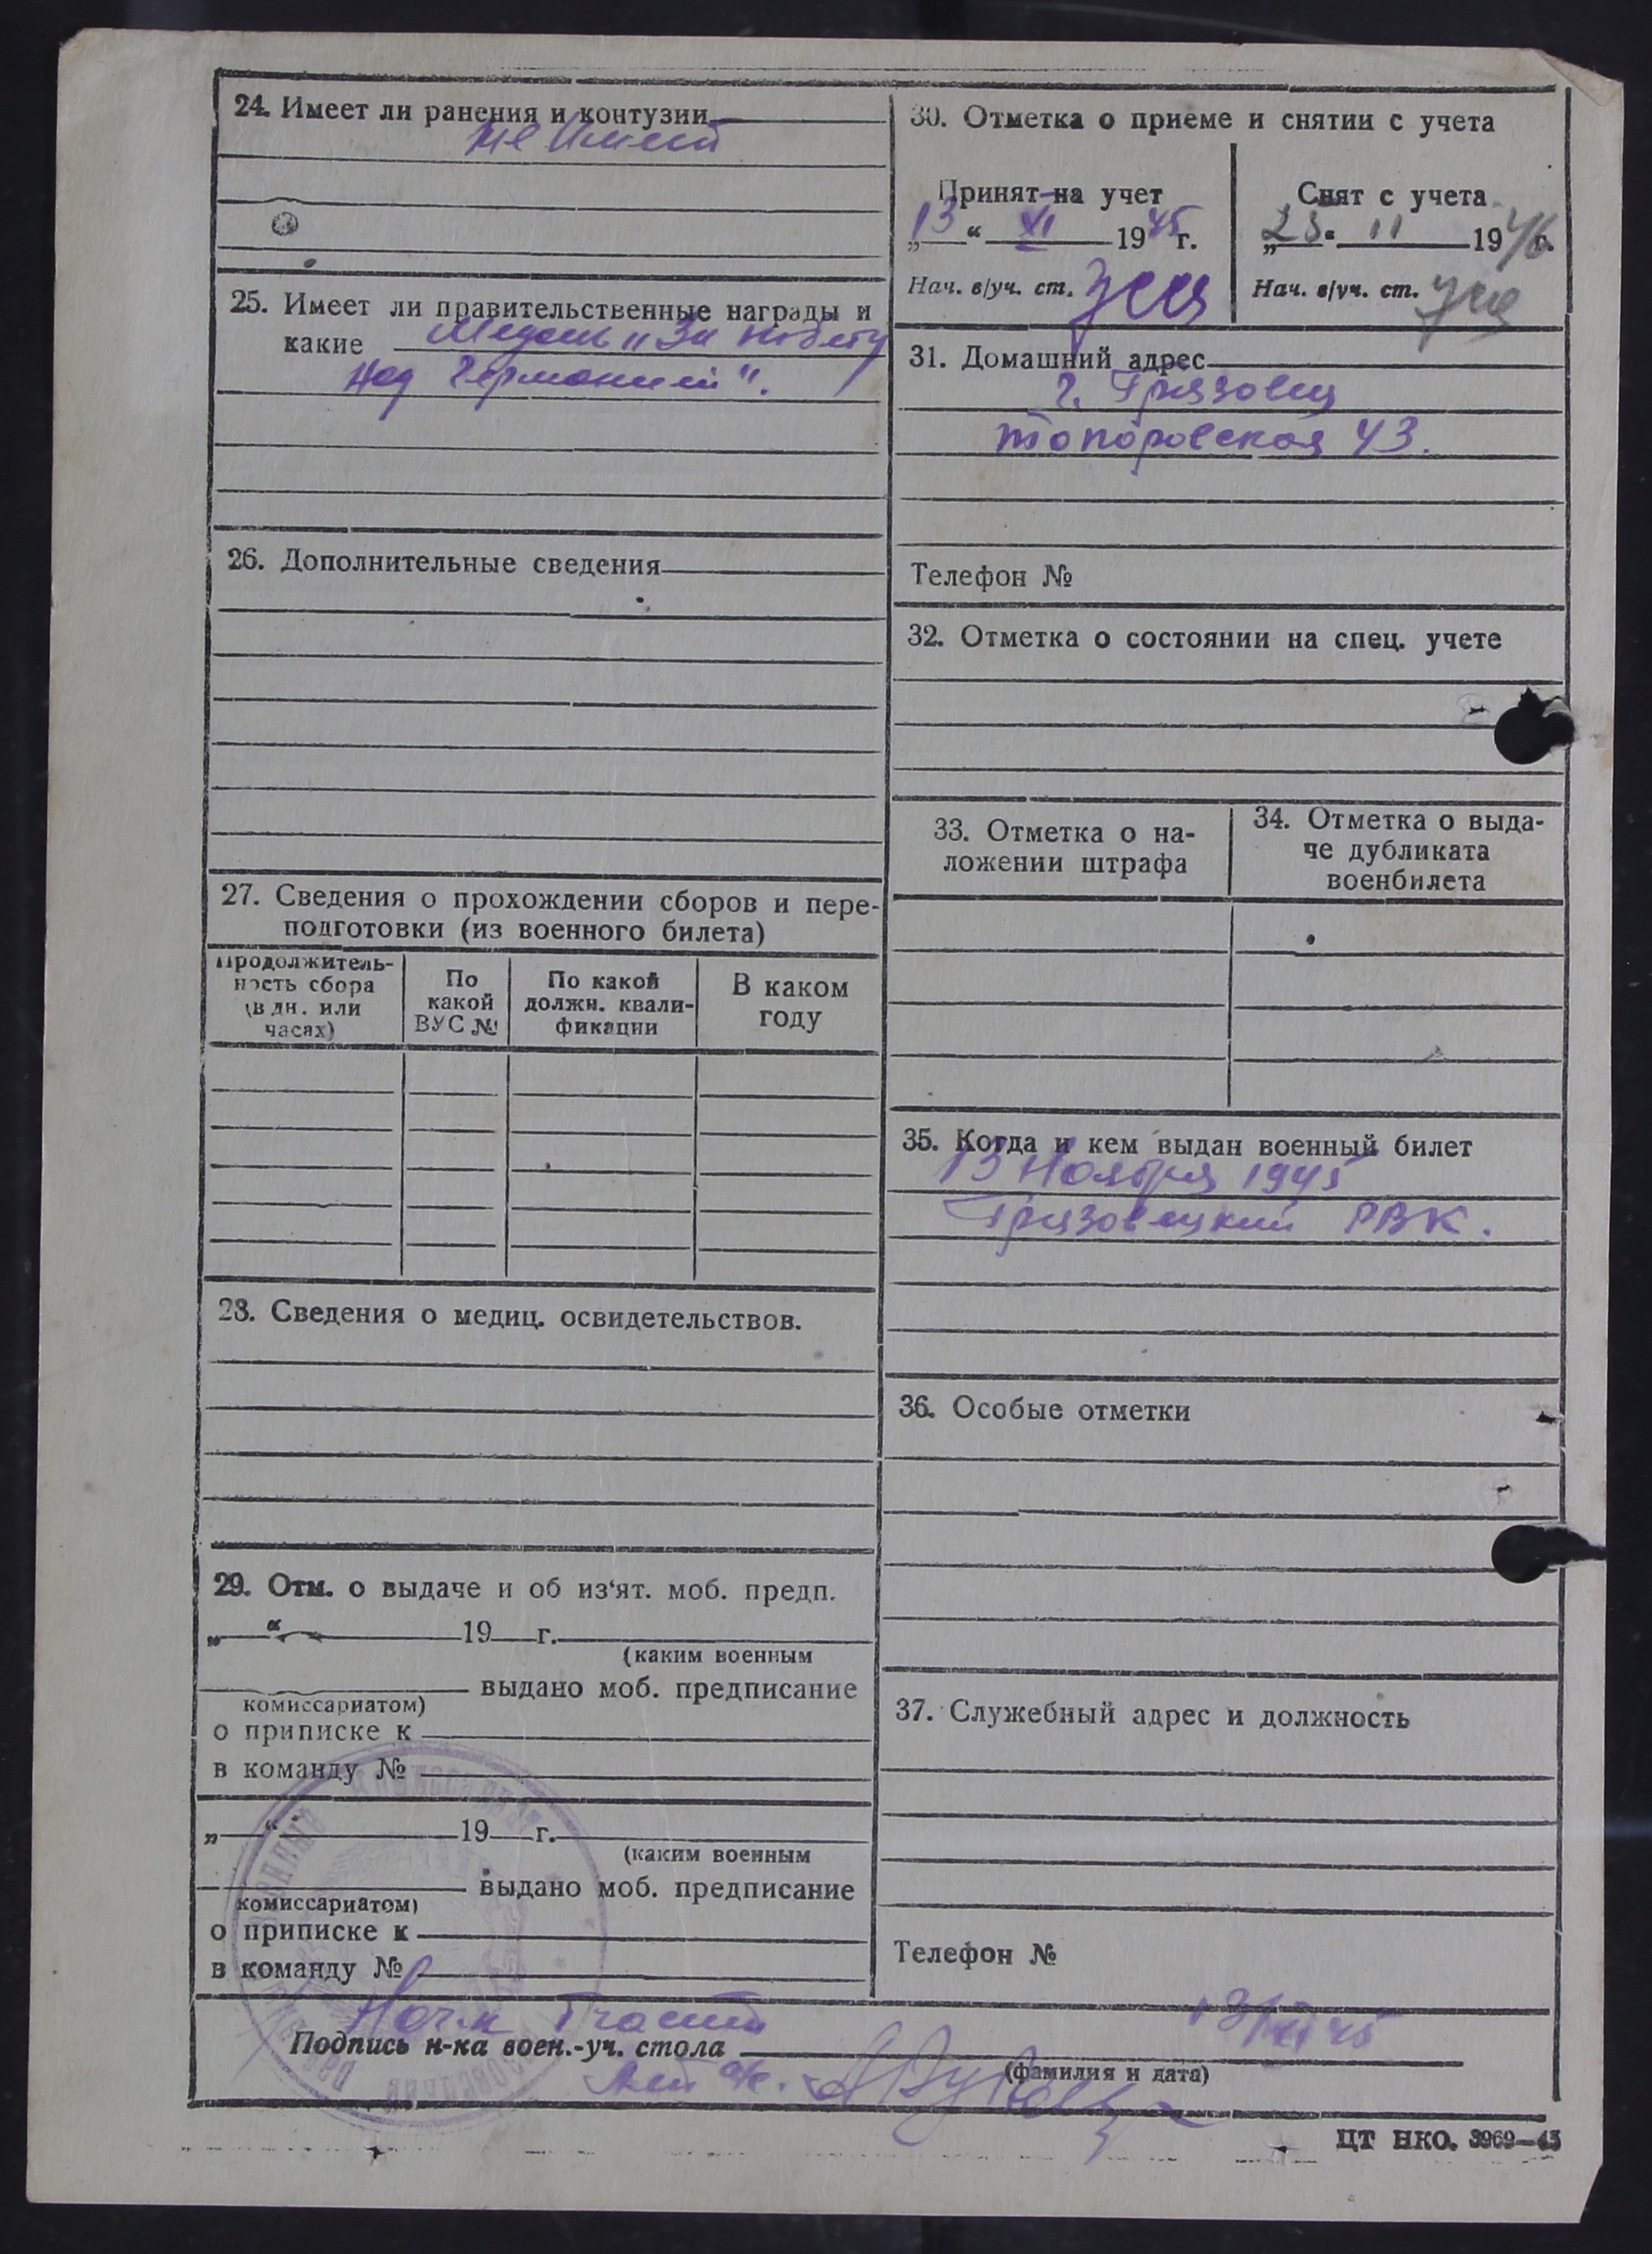 24. Имеет ли ранения и контузии
не имеет
25. Имеет ли правительственные награды и
какие Медаль „За победу
над Германией".
26. Дополнительные сведения
27. Сведения о прохождении сборов и пере-
подготовки (из военного билета)
Продолжитель-
ность сбора
(в дн. или
часах)
По
какой
ВУС №
По какой
должн. квали-
фикации
В каком
году
28. Сведения о медиц. освидетельствов.
29. Отм. о выдаче и об из‘ят. моб. предп.
„ “ 19 г.
(каким военным
выдано моб. предписание
комиссариатом)
о приписке к
в команду №
„ “ 19 г.
(каким военным
выдано моб. предписание
комиссариатом)
о приписке к
в команду №
30. Отметка о приеме и снятии с учета
Принят на учет
„13“ XI 1945 г.
Нач. в/уч. ст.
Снят с учета
„25“ 11 1946 г.
Нач. в/уч. ст.
31. Домашний адрес
г. Грязовец
Топоровская 43.
Телефон №
32. Отметка о состоянии на спец. учете
33. Отметка о на-
ложении штрафа
34. Отметка о выда-
че дубликата
военбилета
35. Когда и кем выдан военный билет
13 Ноября 1945
Грязовецкий РВК.
36. Особые отметки
37. Служебный адрес и должность
Телефон №
Нач-к части
13/XI 45
Подпись н-ка воен.-уч. стола
(фамилия и дата)
ЦТ НКО. 3969—45